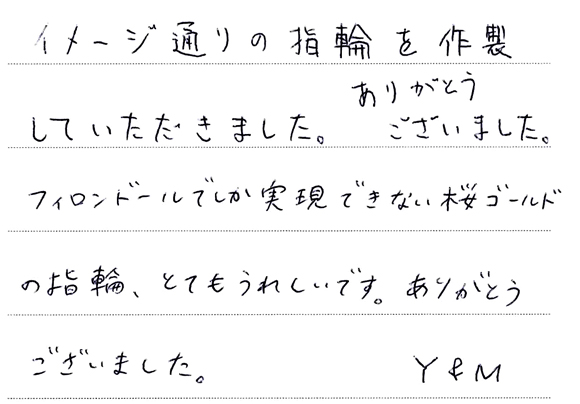 イメージ通りの指輪を作製
していただきました。ありがとうございました。
フィロンドールでしか実現できない桜ゴールド
の指輪、とてもうれしいです。ありがとう
ございました。 Y & M